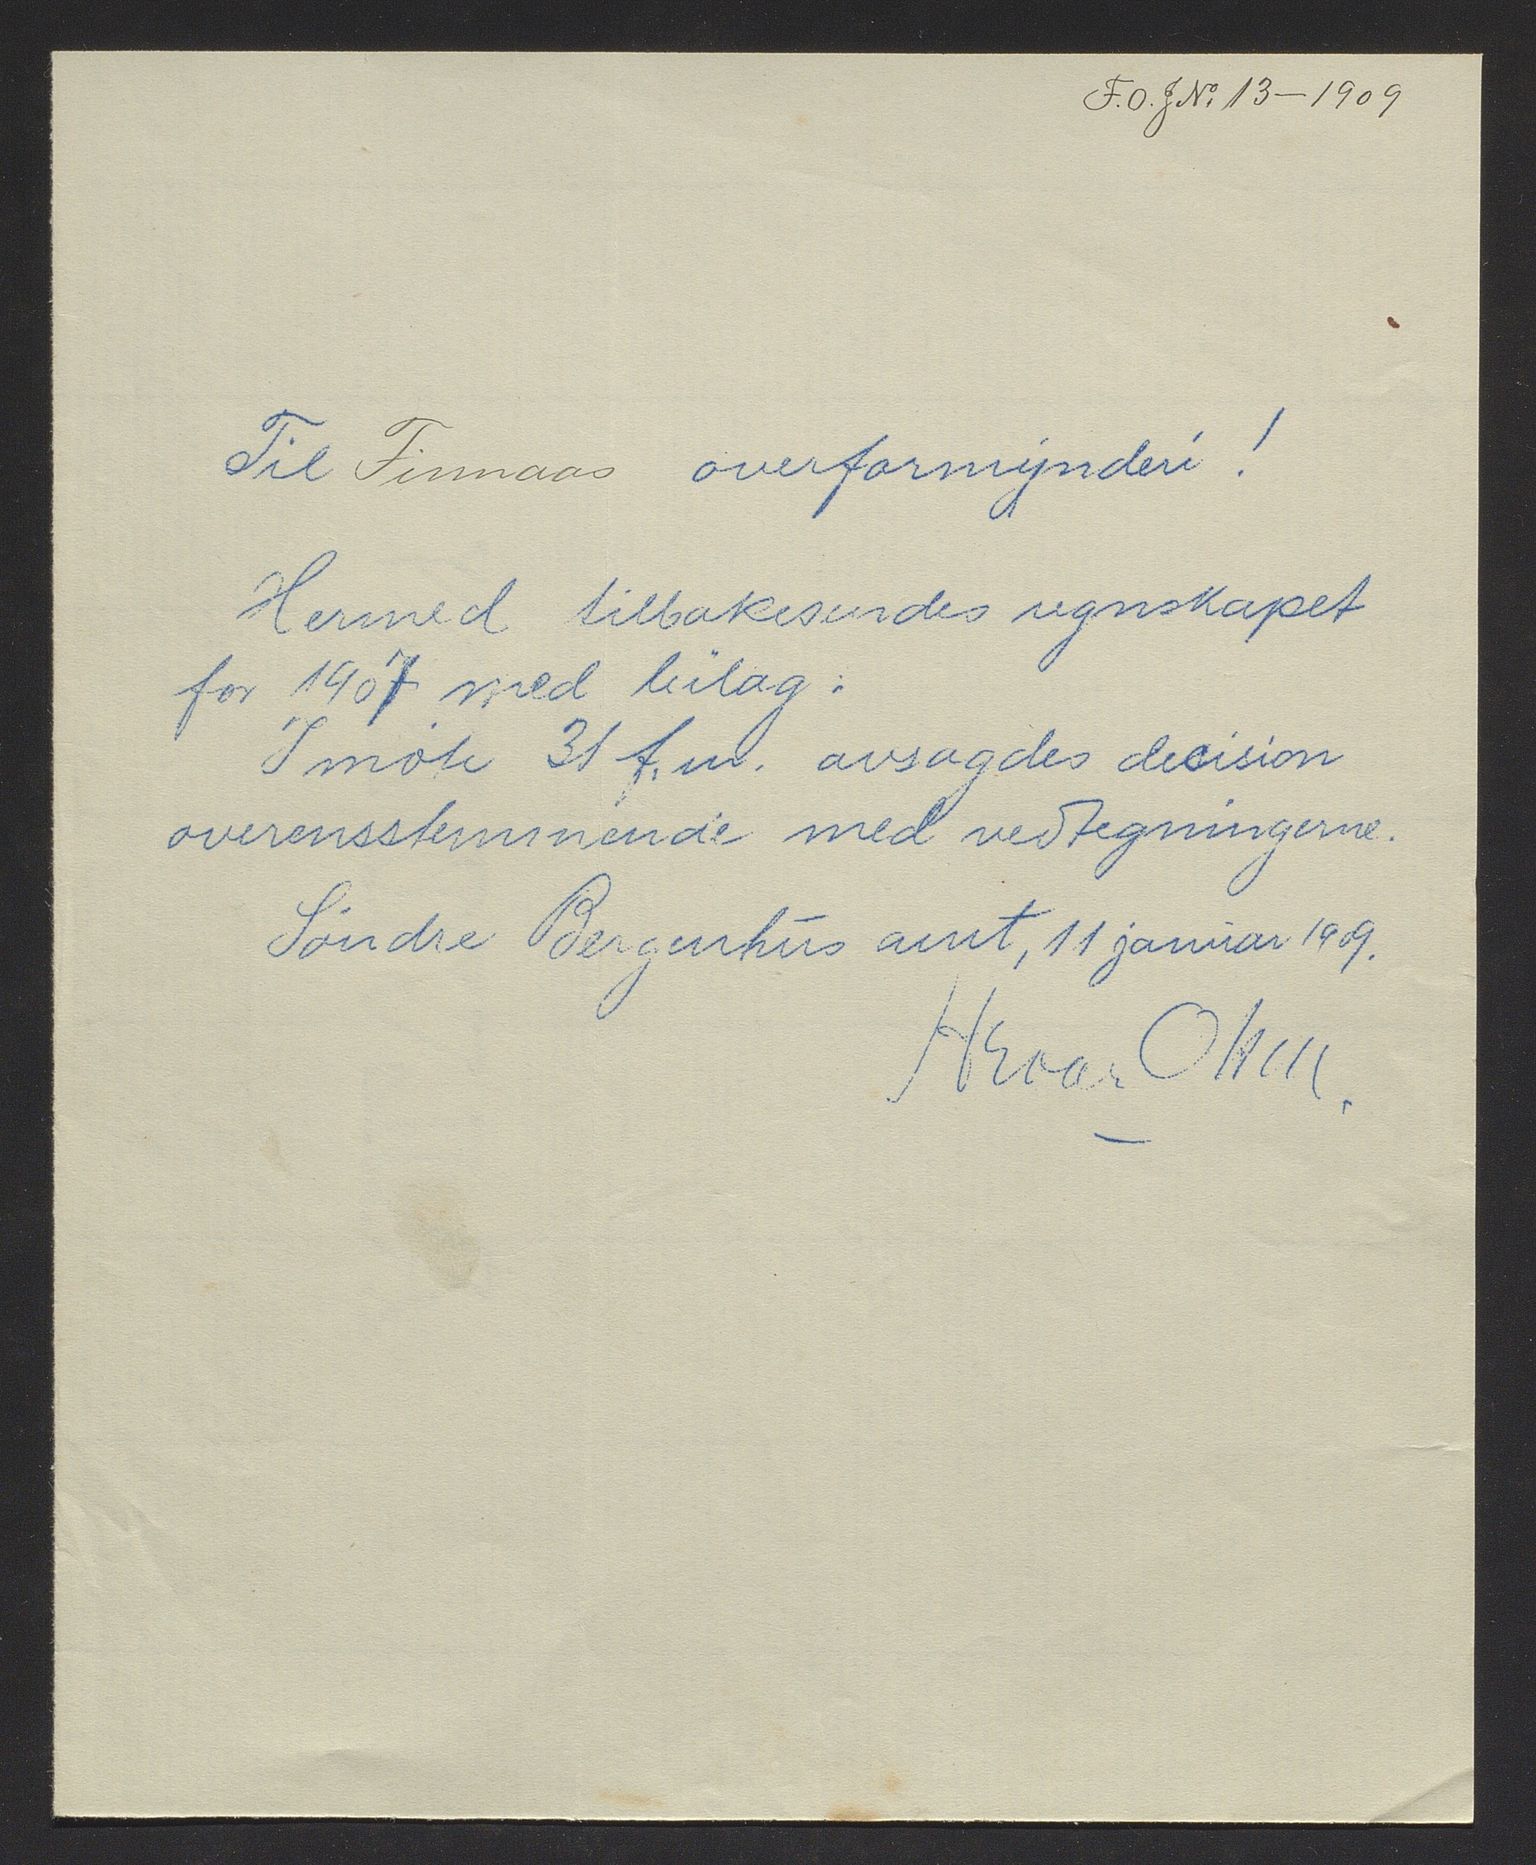 F.O.J.No. 13 – 1909
Til Finnaas overformynderi!
Hermed tilbakesendes regnskapet
for 1907 med bilag.
I møte 31 f.m. avsagdes decision
overensstemmende med vedtegningerne.
Søndre Bergenhus amt, 11 januar 1909.